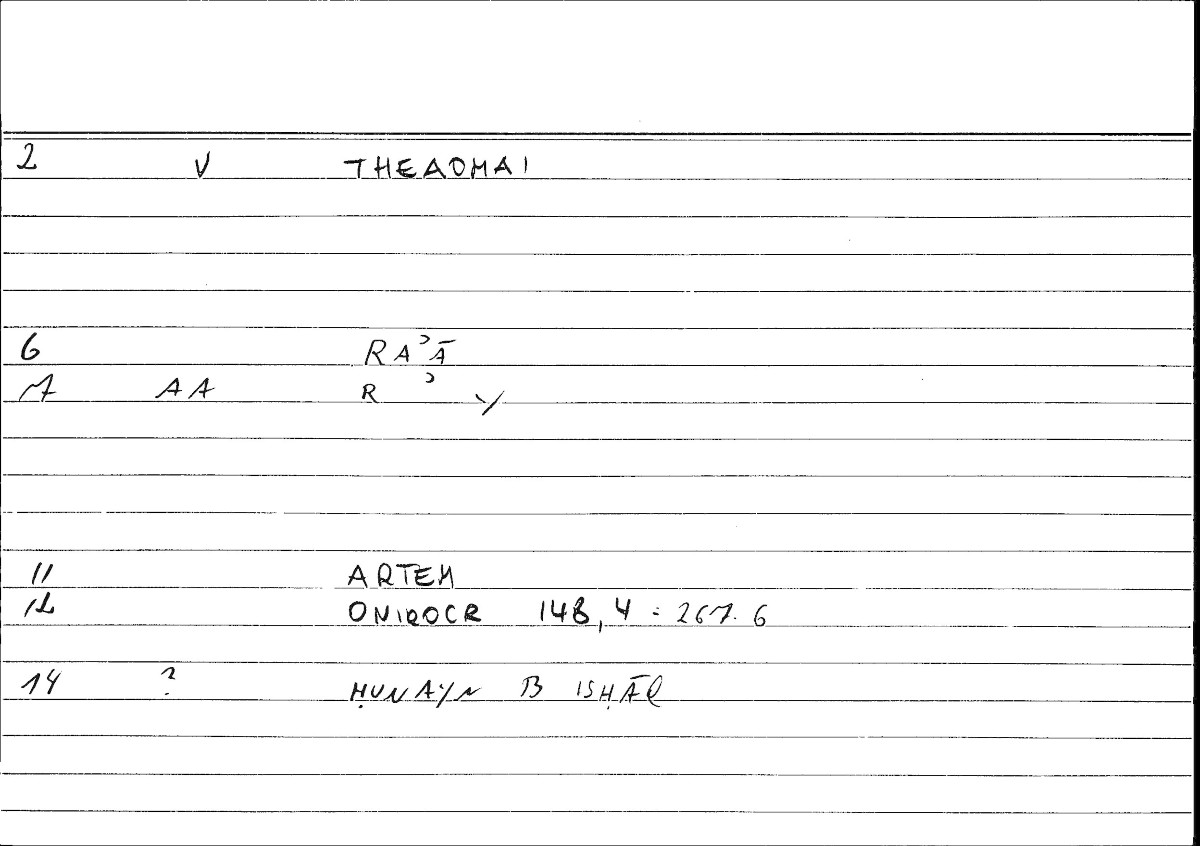 2 V THEAOMAI
6 RAʾĀ
7 AA R ʾ Y
11 ARTEM
12 ONIROCR 148,4 = 267.6
14 ? ḤUNAYN B ISḤĀQ